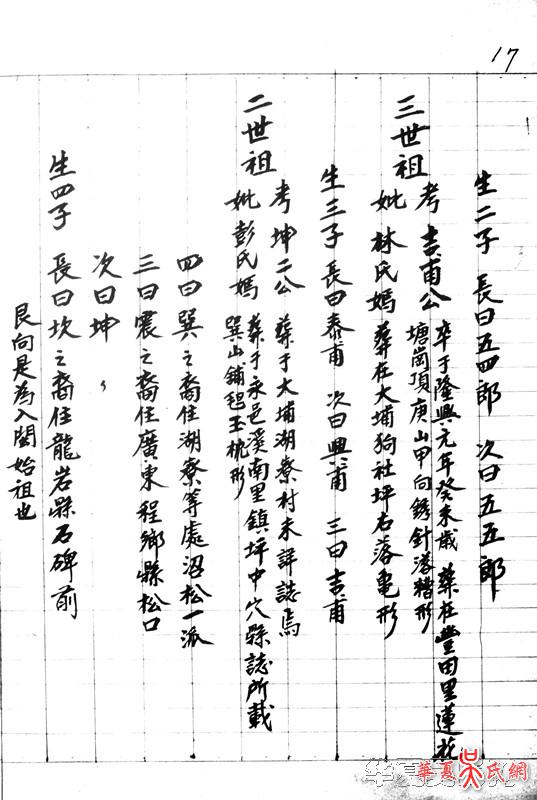 17
艮向是為入閩始祖也
生四子 長曰坎之裔住龍岩縣石碑前
次曰坤
三曰震之裔住廣東程鄉縣松口
四曰巽之裔住湖寮等處沼松一派
二世祖
考坤二公 葬于大埔湖寮村未詳誌焉
妣彭氏媽 葬于永邑溪南里鎮坪中穴縣誌所載
巽山鋪氊玉枕形
生三子 長曰泰甫 次曰興甫 三曰吉甫
三世祖
考吉甫公 卒于隆興元年癸未歲 葬在豐田里蓮花
塘崗頂庚山甲向銹針落糟形
妣林氏媽 葬在大埔狗社坪右落亀形
生二子 長曰五四郎 次曰五五郎
華夏吴氏網